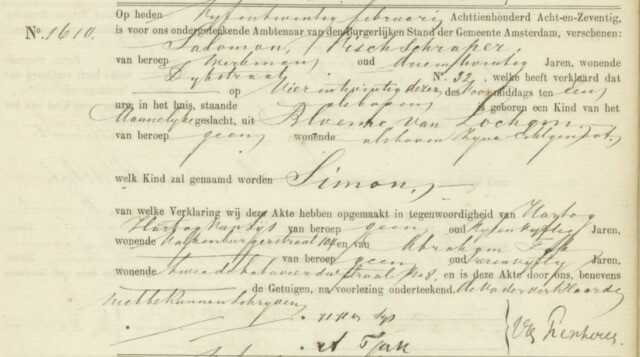 Nº. 1610.
Op heden Vyfentwintig februari Achttienhonderd Acht-en-Zeventig,
is voor ons ondergeteekende Ambtenaar van den Burgerlijken Stand der Gemeente Amsterdam, verschenen:
Salomon, Vischschraper,
van beroep Werkman, oud Jaren, wonende
Dykstraat Nº. 32, welke heeft verklaard dat
op Vier entwintig dezer des Voormiddags ten een
ure, in het huis, staande alsboven is geboren een Kind van het
Mannelyke geslacht, uit Bloeme van Lochem,
van beroep geen wonende alsboven zyne Echtgenoot.
welk Kind zal genaamd worden Simon,
van welke Verklaring wij deze Akte hebben opgemaakt in tegenwoordigheid van Hartog
Hartog van Tys van beroep geen oud Jaren,
wonende Valkenburgerstraat 104 en van Abraham Tak
van beroep geen oud Jaren,
wonende tweede Batavierdwarsstraat Nº 8, en is deze Akte door ons, benevens
de Getuigen, na voorlezing onderteekend. De Vader verklaarde
niet te kunnen schryven
H H van Tys
A Tak